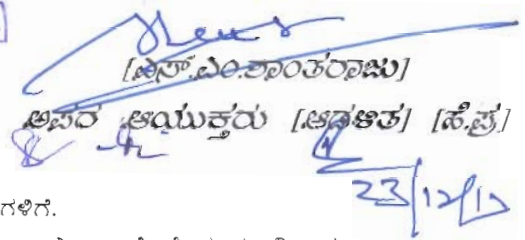 [ಎಸ್.ಎಂ.ಶಾಂತರಾಜು]
ಅಪರ ಆಯುಕ್ತರು [ಆಡಳಿತ] [ಹೆ.ಪ್ರ]
23/12/17
ಗಳಿಗೆ.